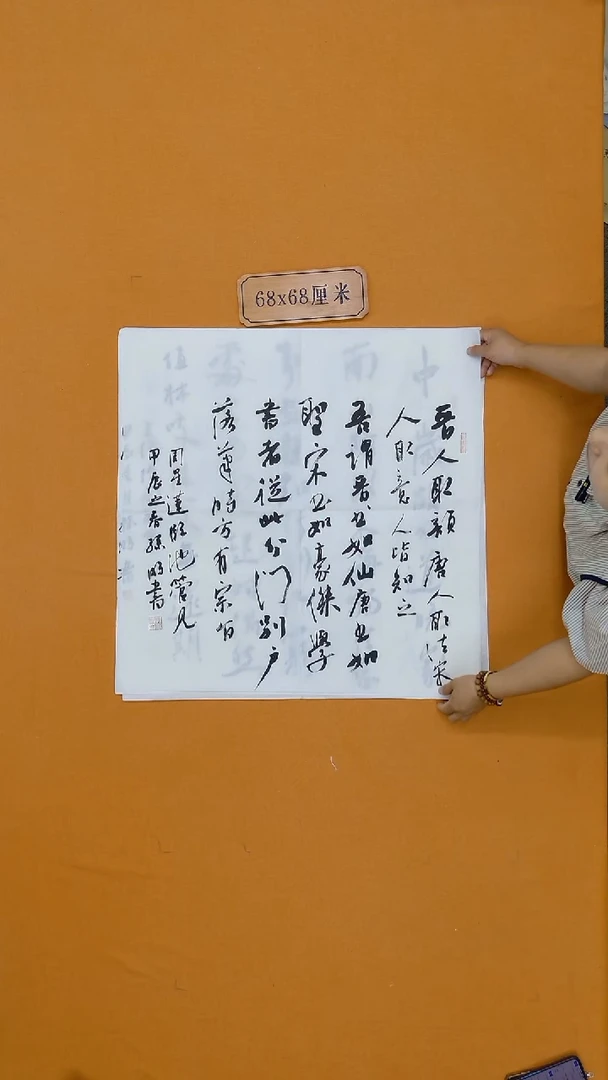 68x68厘米
晋人取韻唐人取法宋
人取意人皆知之
吾謂晋书如仙唐书如
聖宋书如豪傑學
書者從此分门别户
落筆時方有宗旨
周星蓮臨池管见
甲辰之春孫明書